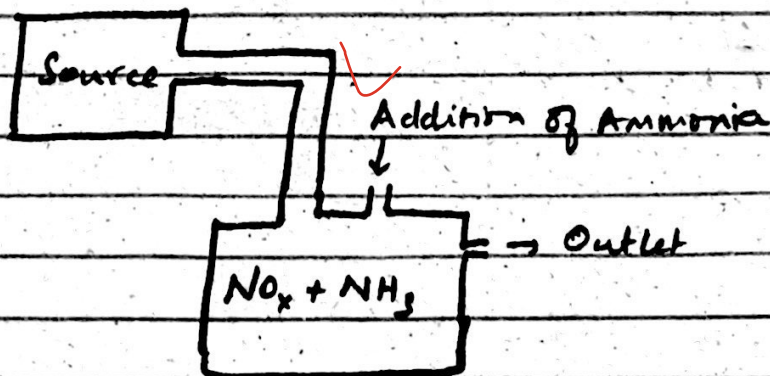 Source
Addition of Ammonia
→ Outlet
NOₓ + NH₃